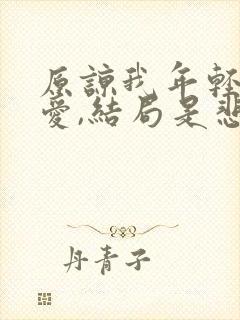 原諒我年輕
愛,結局是悲
丹青子